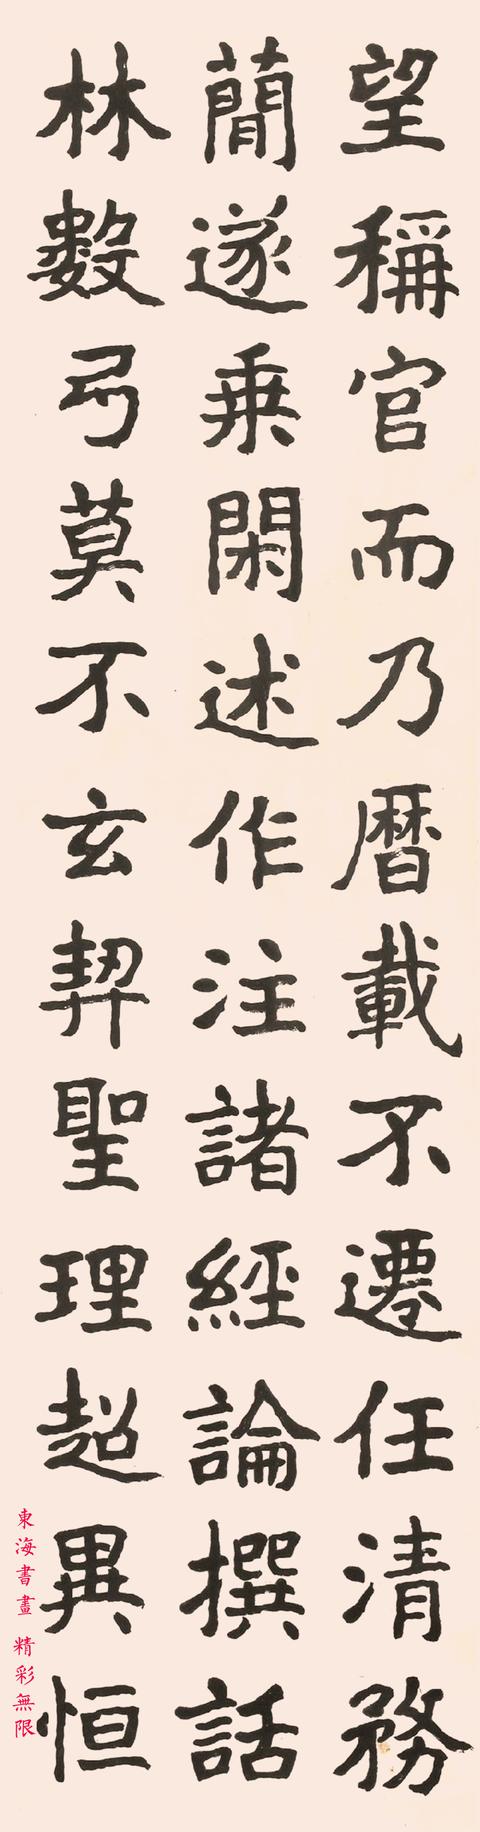 望稱官而乃曆載不遷任清務
蕳遂乗閑述作注諸經論撰話
林數弓莫不玄契聖理超異恒
東海書畫 精彩無限